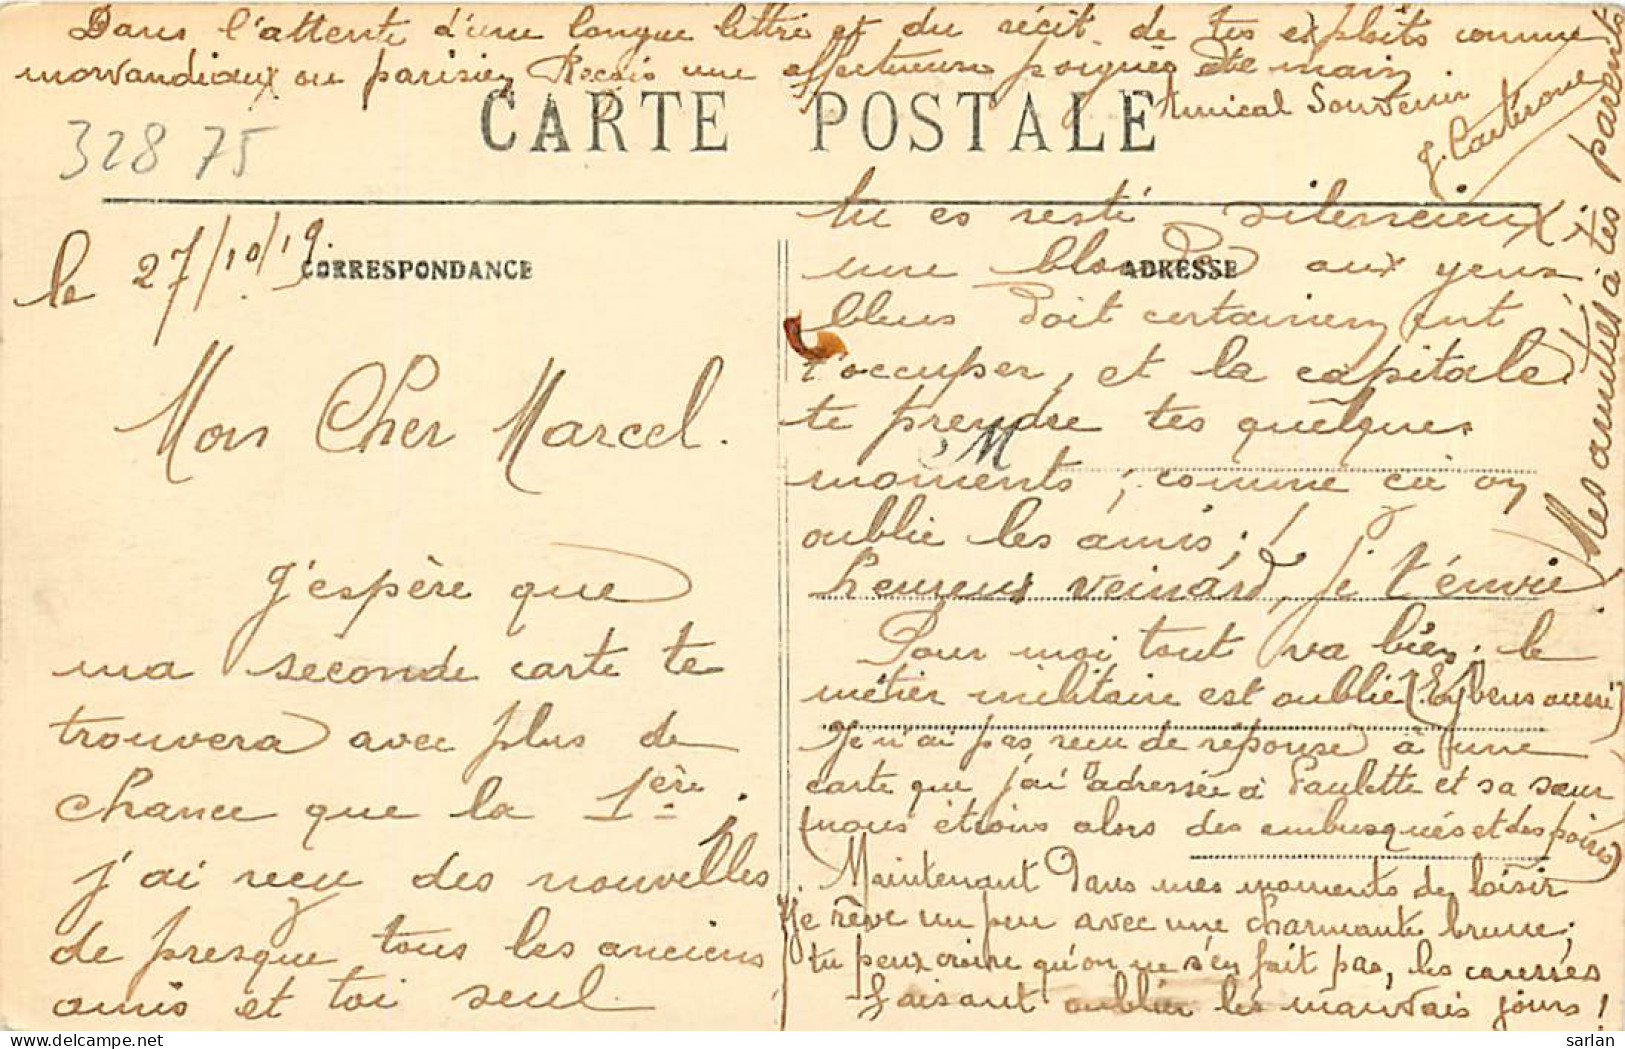 Dans l'attente d'une longue lettre et du récit de tes exploits comme
morvandiaux ou parisien Reçois une affectueuse poignée de main
Amical Souvenir
CARTE POSTALE
32875
le 27/10/19.
CORRESPONDANCE
Mon Cher Marcel.
J'espère que
ma seconde carte te
trouvera avec plus de
chance que la 1ère.
j'ai reçu des nouvelles
de presque tous les anciens
amis et toi seul
ADRESSE
M
tu es resté silencieux;
une blonde aux yeux
bleus doit certainement
t'occuper, et la capitale
te prendre tes quelques
moments; comme çà on
oublie les amis;!
heureux veinard, je t'envie
Pour moi tout va bien; le
métier militaire est oublié (Eybens aussi)
Je n'ai pas reçu de réponse à une
carte que j'ai adressée à Paulette et sa sœur
(nous étions alors des embusqués et des poires)
Maintenant dans mes moments de loisir
je rêve un peu avec une charmante brune;
tu peux croire qu'on ne s'en fait pas, les caresses
faisant oublier les mauvais jours!
Mes amitiés à tes parents
sarlan